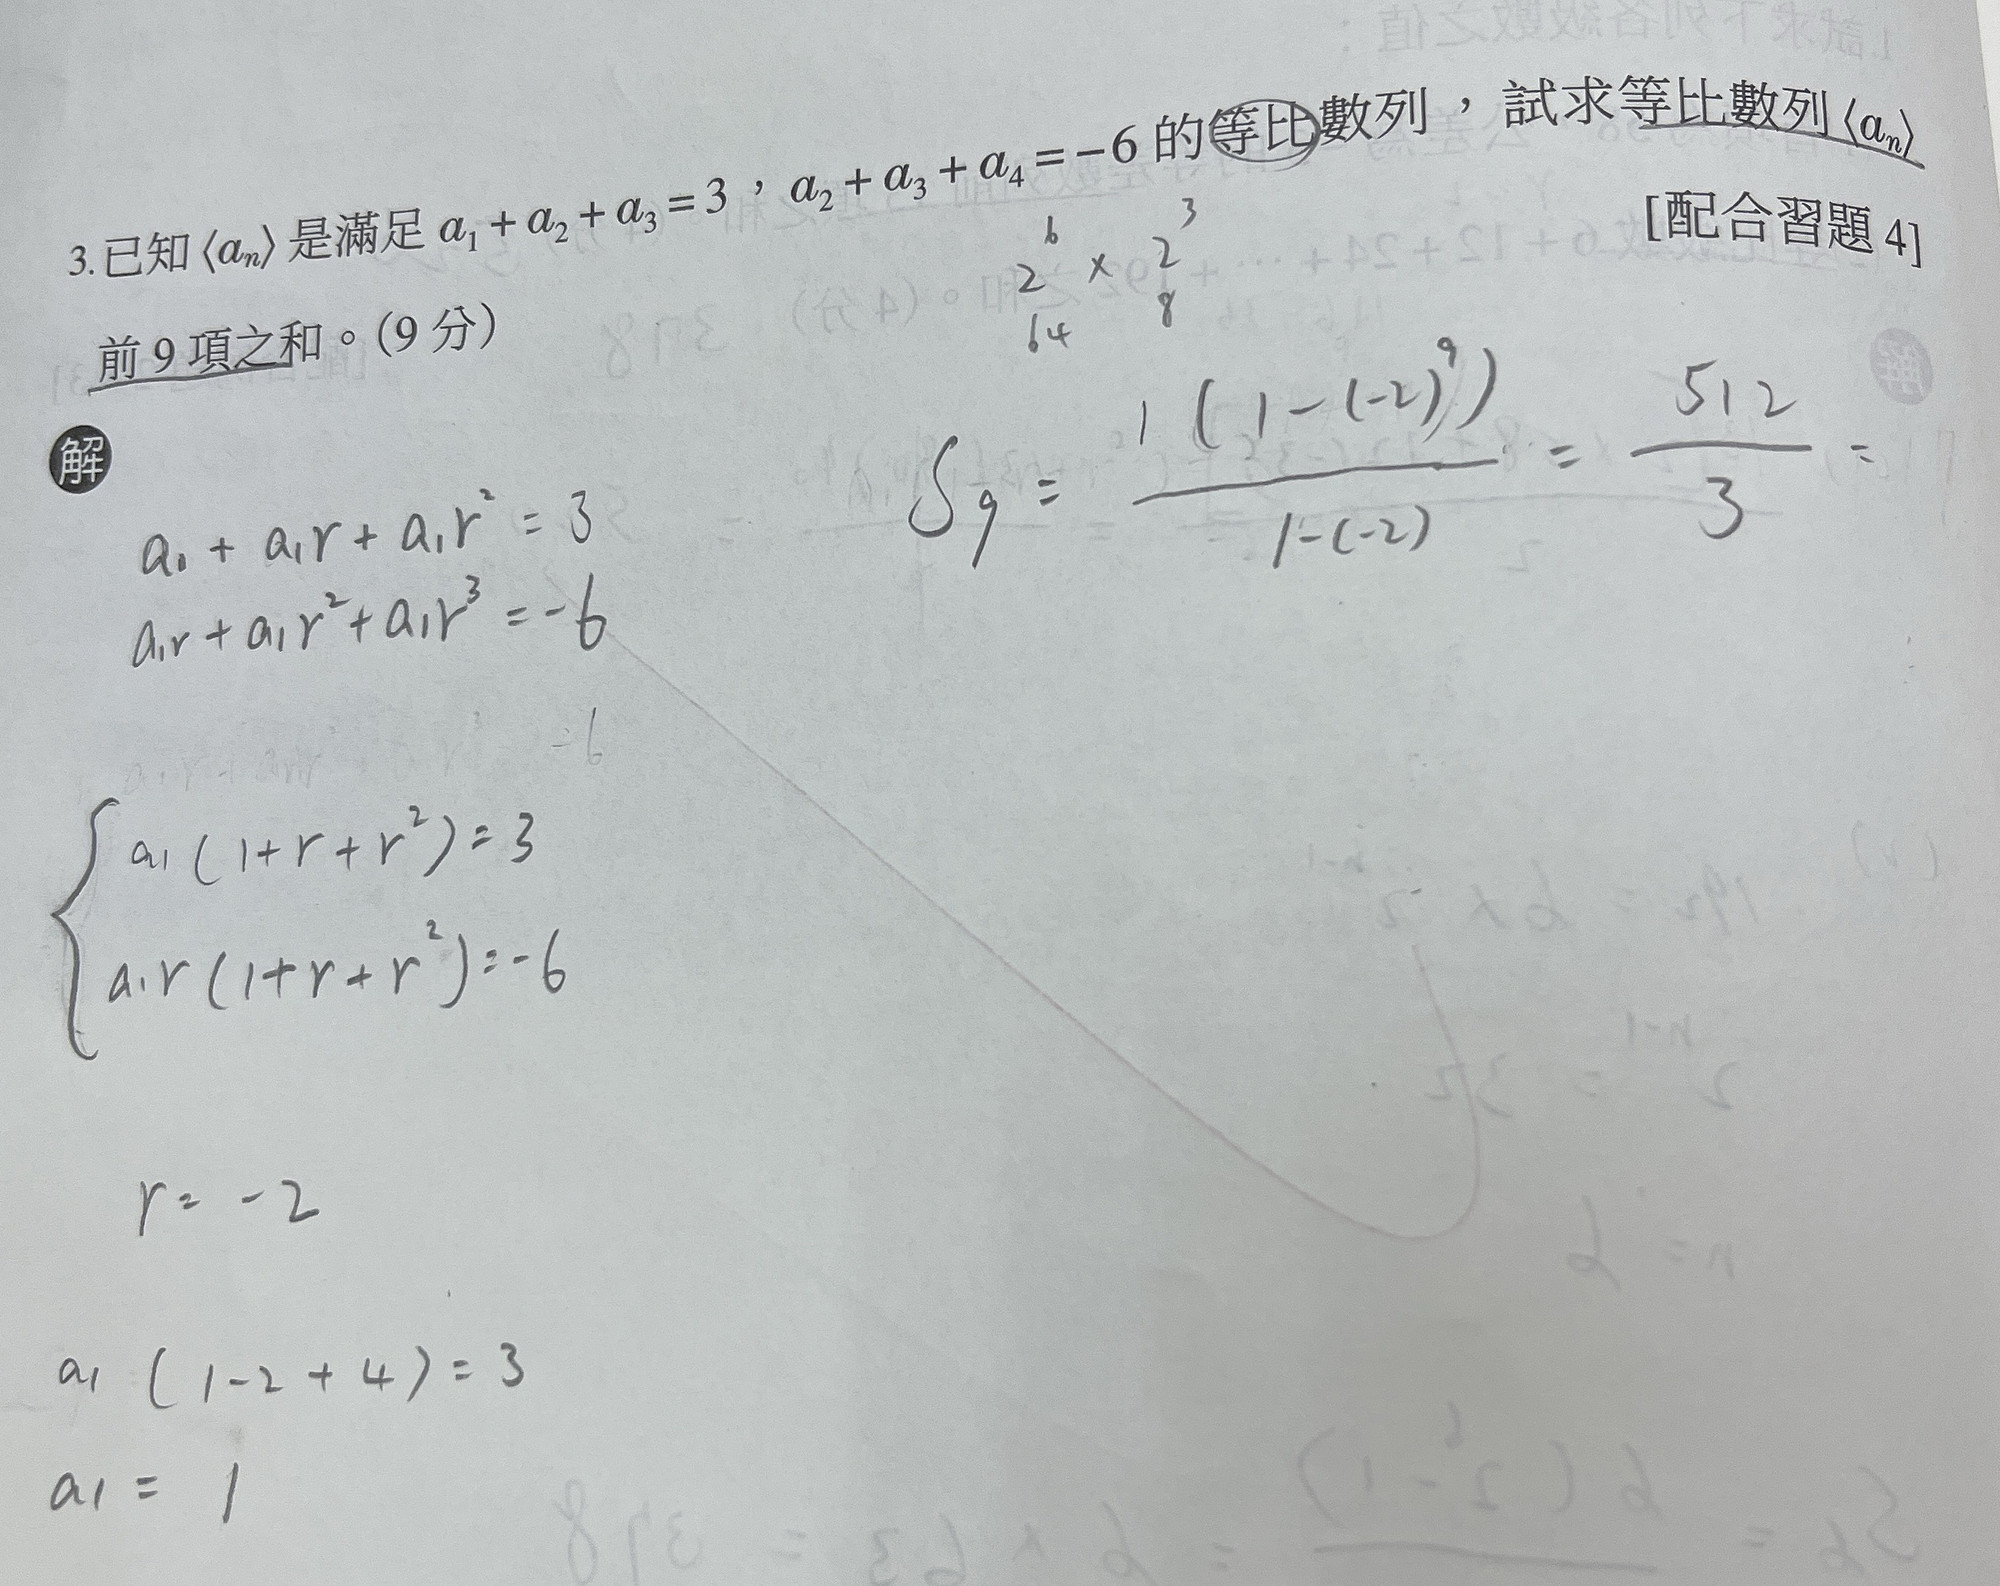 3.已知⟨aₙ⟩是滿足 a₁+a₂+a₃=3，a₂+a₃+a₄=−6 的等比數列，試求等比數列⟨aₙ⟩
前 9 項之和。(9 分)
[配合習題 4]
2⁶ × 2³
64 8
解
a₁ + a₁r + a₁r² = 3
a₁r + a₁r² + a₁r³ = -6
-6
a₁(1+r+r²)=3
a₁r(1+r+r²)=-6
r= -2
a₁(1-2+4)=3
a₁ = 1
S₉ = 1(1-(-2)⁹) / 1-(-2) = 512 / 3 =